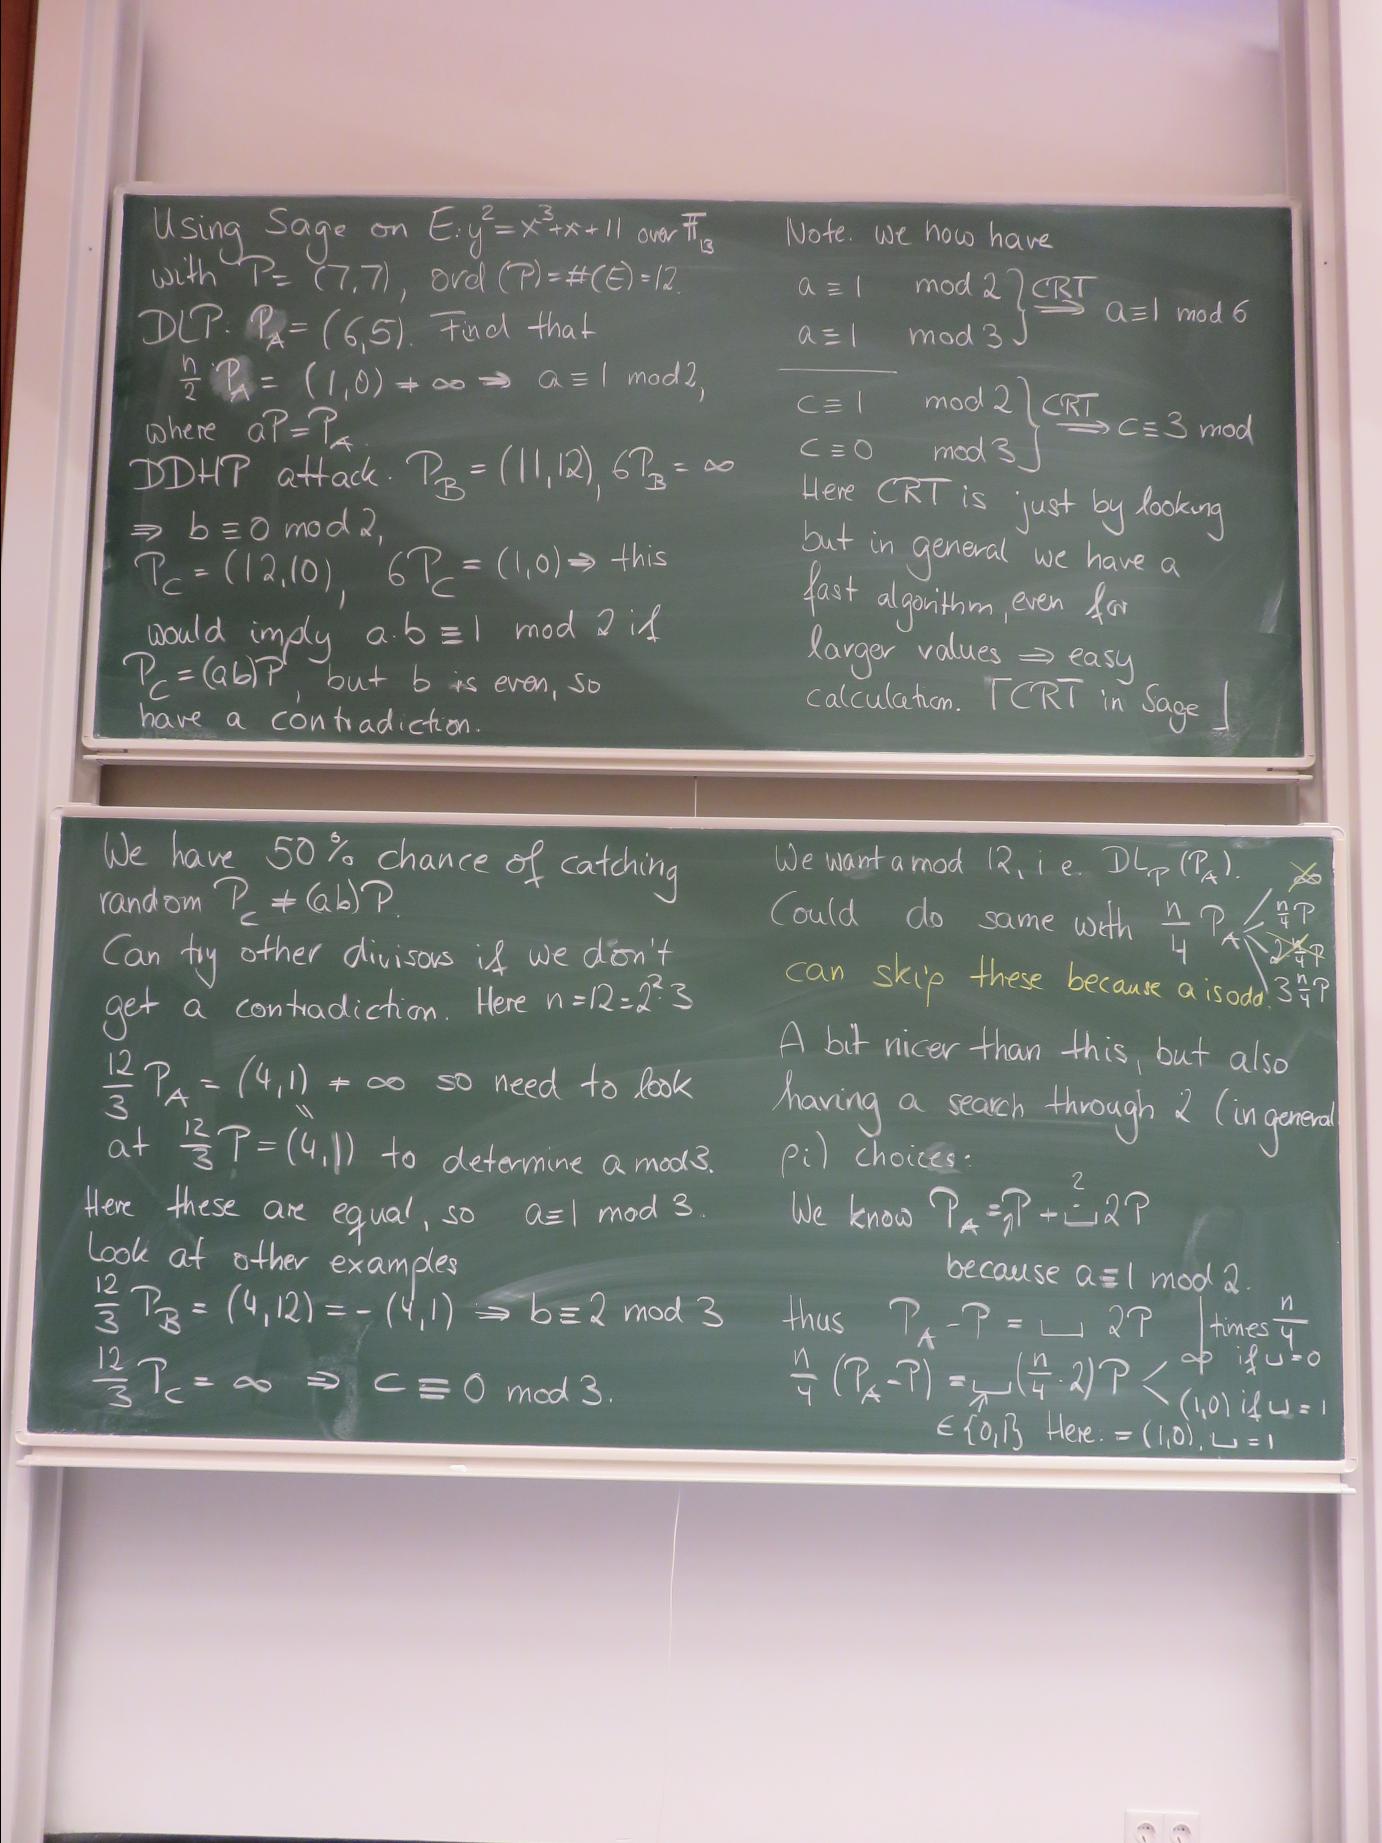 Using Sage on E: y²=x³+x+11 over F₁₃
with P=(7,7), ord(P)=#(E)=12.
DLP. P_A=(6,5). Find that
n/2 P_A = (1,0) ≠ ∞ ⇒ a≡1 mod 2,
where aP=P_A.
DDHP attack. P_B=(11,12), 6P_B=∞
⇒ b≡0 mod 2,
P_C=(12,10), 6P_C=(1,0)⇒ this
would imply a·b≡1 mod 2 if
P_C=(ab)P, but b is even, so
have a contradiction.
Note. we now have
a≡1 mod 2
a≡1 mod 3 } CRT ⇒ a≡1 mod 6
c≡1 mod 2
c≡0 mod 3 } CRT ⇒ c≡3 mod
Here CRT is just by looking
but in general we have a
fast algorithm, even for
larger values ⇒ easy
calculation. ⌈CRT in Sage⌋
We have 50% chance of catching
random P_C ≠ (ab)P.
Can try other divisors if we don't
get a contradiction. Here n=12=2²·3
12/3 P_A = (4,1) ≠ ∞ so need to look
at 12/3 P = (4,1) to determine a mod 3.
Here these are equal, so a≡1 mod 3.
Look at other examples
12/3 P_B = (4,12) = -(4,1) ⇒ b≡2 mod 3
12/3 P_C = ∞ ⇒ c≡0 mod 3.
We want a mod 12, i.e. DL_P(P_A).
∞
Could do same with n/4 P_A < n/4 P
2 n/4 P
can skip these because a is odd. 3 n/4 P
A bit nicer than this, but also
having a search through 2 (in general
pi) choices:
2
We know P_A = 1P + ⊔ 2P
because a≡1 mod 2.
thus P_A-P = ⊔ 2P | times n/4
n/4 (P_A-P) = ⊔(n/4·2)P < ∞ if ⊔=0
(1,0) if ⊔=1
∈{0,1} Here: =(1,0), ⊔=1